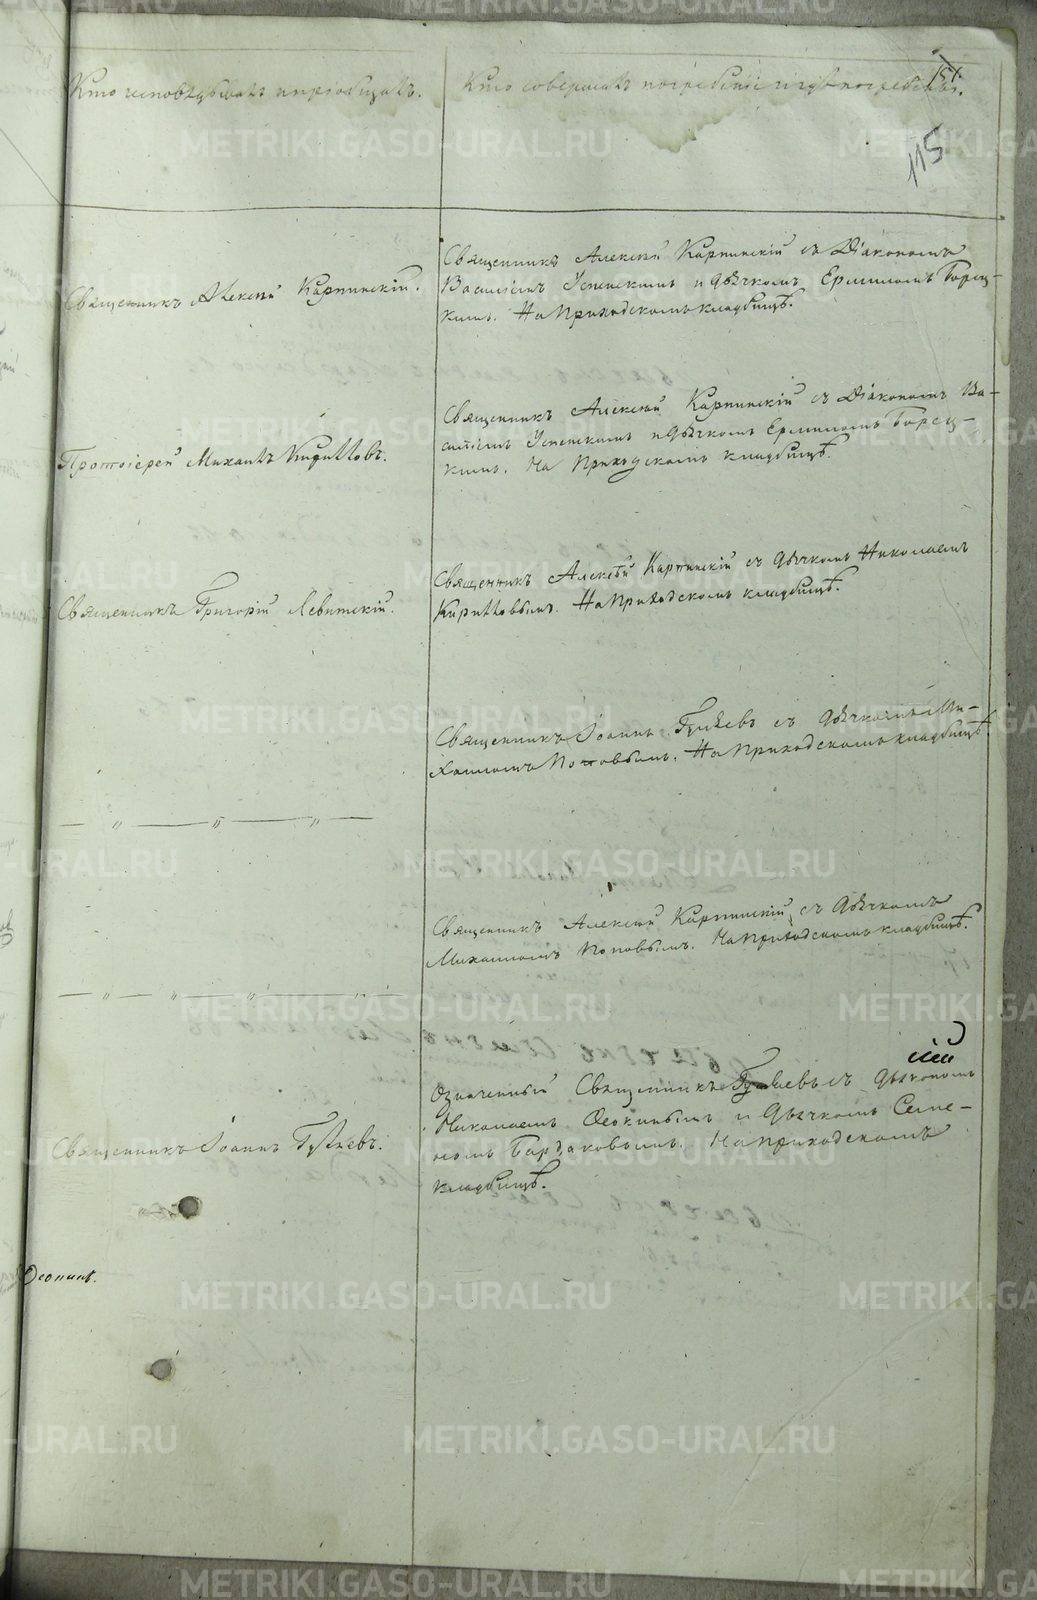 151.
Кто исповѣдывалъ и пріобщалъ.
Кто совершалъ погребеніе и гдѣ погребены.
115
Священникъ Алексѣй Карпинскій.
Священникъ Алексѣй Карпинскій съ Діакономъ
Василіемъ Успенскимъ и дьячкомъ Ермиломъ Борец-
кимъ. На Приходскомъ кладбищѣ.
Протоіерей Михаилъ Кирилловъ.
Священникъ Алексѣй Карпинскій съ Діакономъ Ва-
силіемъ Успенскимъ и дьячкомъ Ермиломъ Борец-
кимъ. На Приходскомъ кладбищѣ.
Священникъ Григорій Левитскій.
Священникъ Алексѣй Карпинскій съ дьячкомъ Николаемъ
Кирилловымъ. На Приходскомъ кладбищѣ.
Священникъ Іоаннъ Гуляевъ съ дьячкомъ Ми-
хаиломъ Поповымъ. На Приходскомъ кладбищѣ.
— „ — „ — „ —
Священникъ Алексѣй Карпинскій съ дьячкомъ
Михаиломъ Поповымъ. На Приходскомъ кладбищѣ.
— „ — „ — „ — „ —
Священникъ Іоаннъ Гуляевъ.
Означенный Священникъ Гуляевъ съ діакономъ
Николаемъ Ѳеокинымъ и дьячкомъ Семе-
номъ Бардаковымъ. На приходскомъ
кладбищѣ.
METRIKI.GASO-URAL.RU